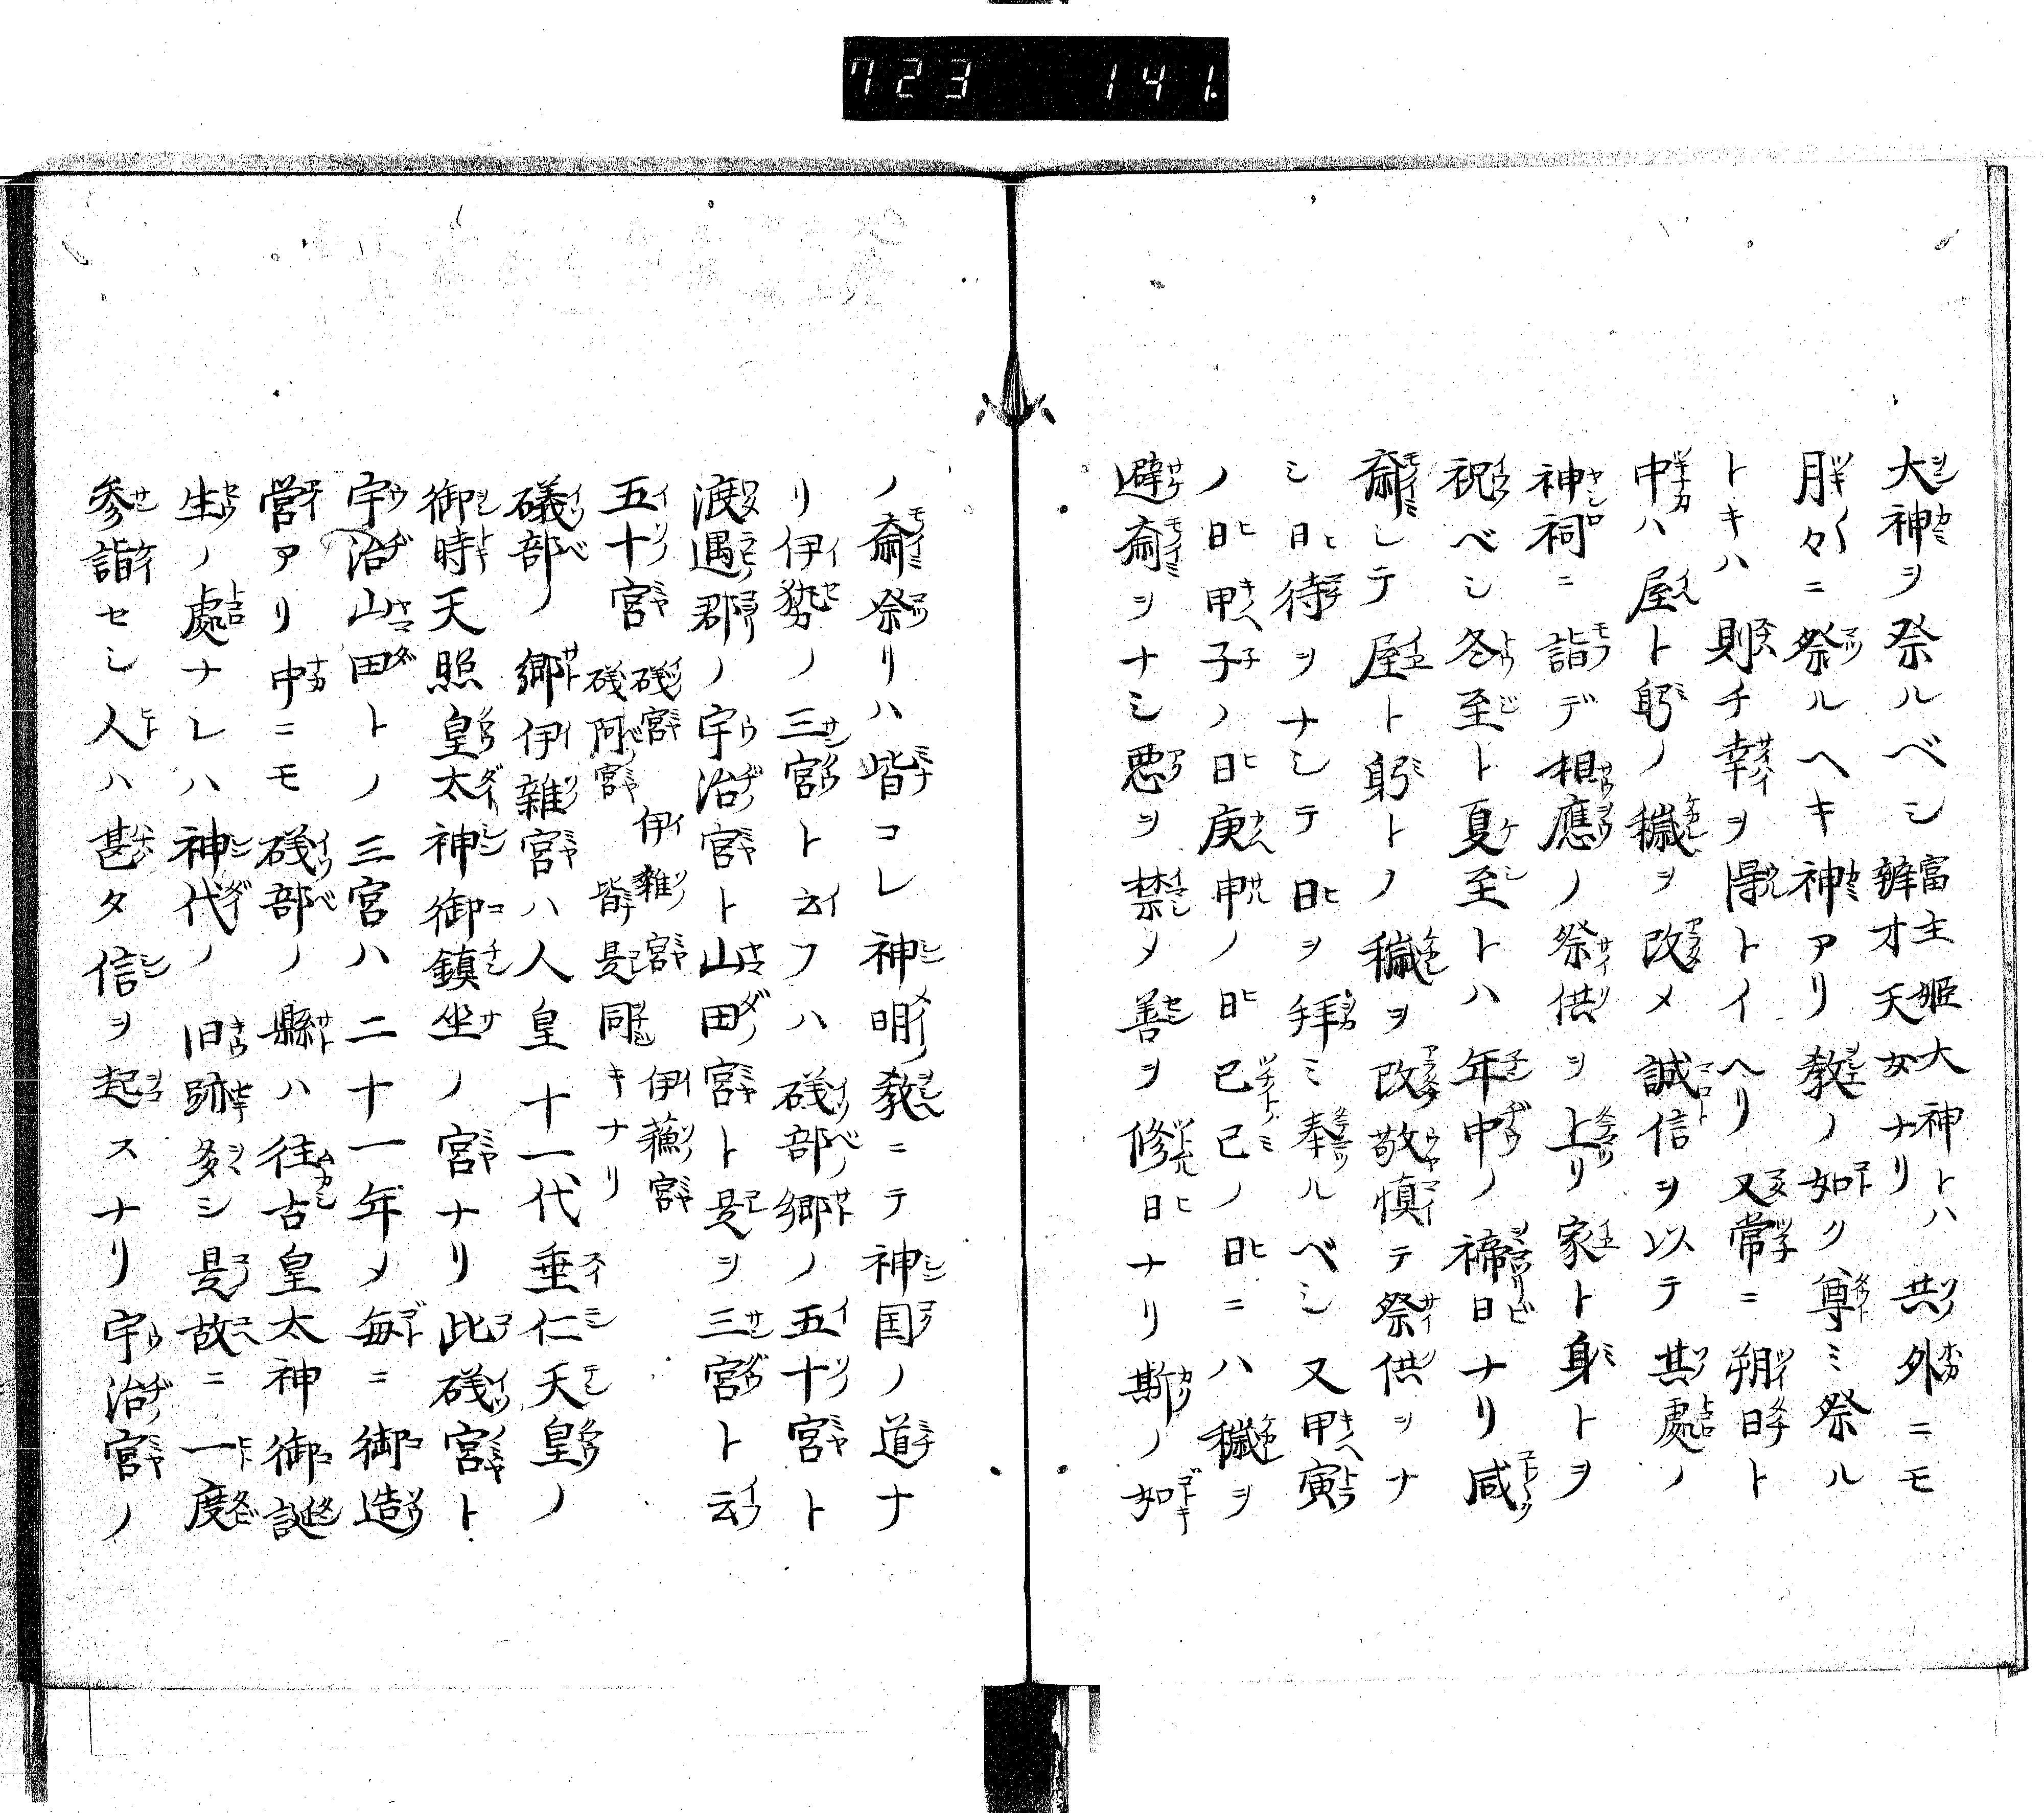 723 141.
大神ヲ祭ルベシ富主姫大神トハ辨才天女ナリ共外ニモ
月々ニ祭ルヘキ神アリ教ノ如ク尊ミ祭ル
トキハ則チ幸ヲ得トイヘリ又常ニ朔日ト
中ハ屋ト躬ノ穢ヲ改メ誠信ヲ以テ其處ノ
神祠ニ詣デ相應ノ祭供ヲ上リ家ト身トヲ
祝ベシ冬至ト夏至トハ年中ノ禘日ナリ咸
齋シテ屋ト躬トノ穢ヲ改敬慎テ祭供ヲナ
シ日待ヲナシテ日ヲ拝ミ奉ルベシ又甲寅
ノ日甲子ノ日庚申ノ日己巳ノ日ニハ穢ヲ
避齋ヲナシ悪ヲ禁メ善ヲ修日ナリ斯ノ如
ノ齋祭リハ皆コレ神明教ニテ神国ノ道ナ
リ伊勢ノ三宮ト云フハ礒部郷ノ五十宮ト
渡遇郡ノ宇治宮ト山田宮ト是ヲ三宮ト云
五十宮 礒宮 伊雜宮 伊蘓宮
礒阿宮 皆是同キナリ
礒部ノ郷伊雜宮ハ人皇十一代垂仁天皇ノ
御時天照皇太神御鎮坐ノ宮ナリ此礒宮ト
宇治山田トノ三宮ハ二十一年ノ毎ニ御造
営アリ中ニモ礒部ノ縣ハ往古皇太神御誕
生ノ處ナレハ神代ノ旧跡多シ是故ニ一度
参詣セシ人ハ甚タ信ヲ起スナリ宇治宮ノ